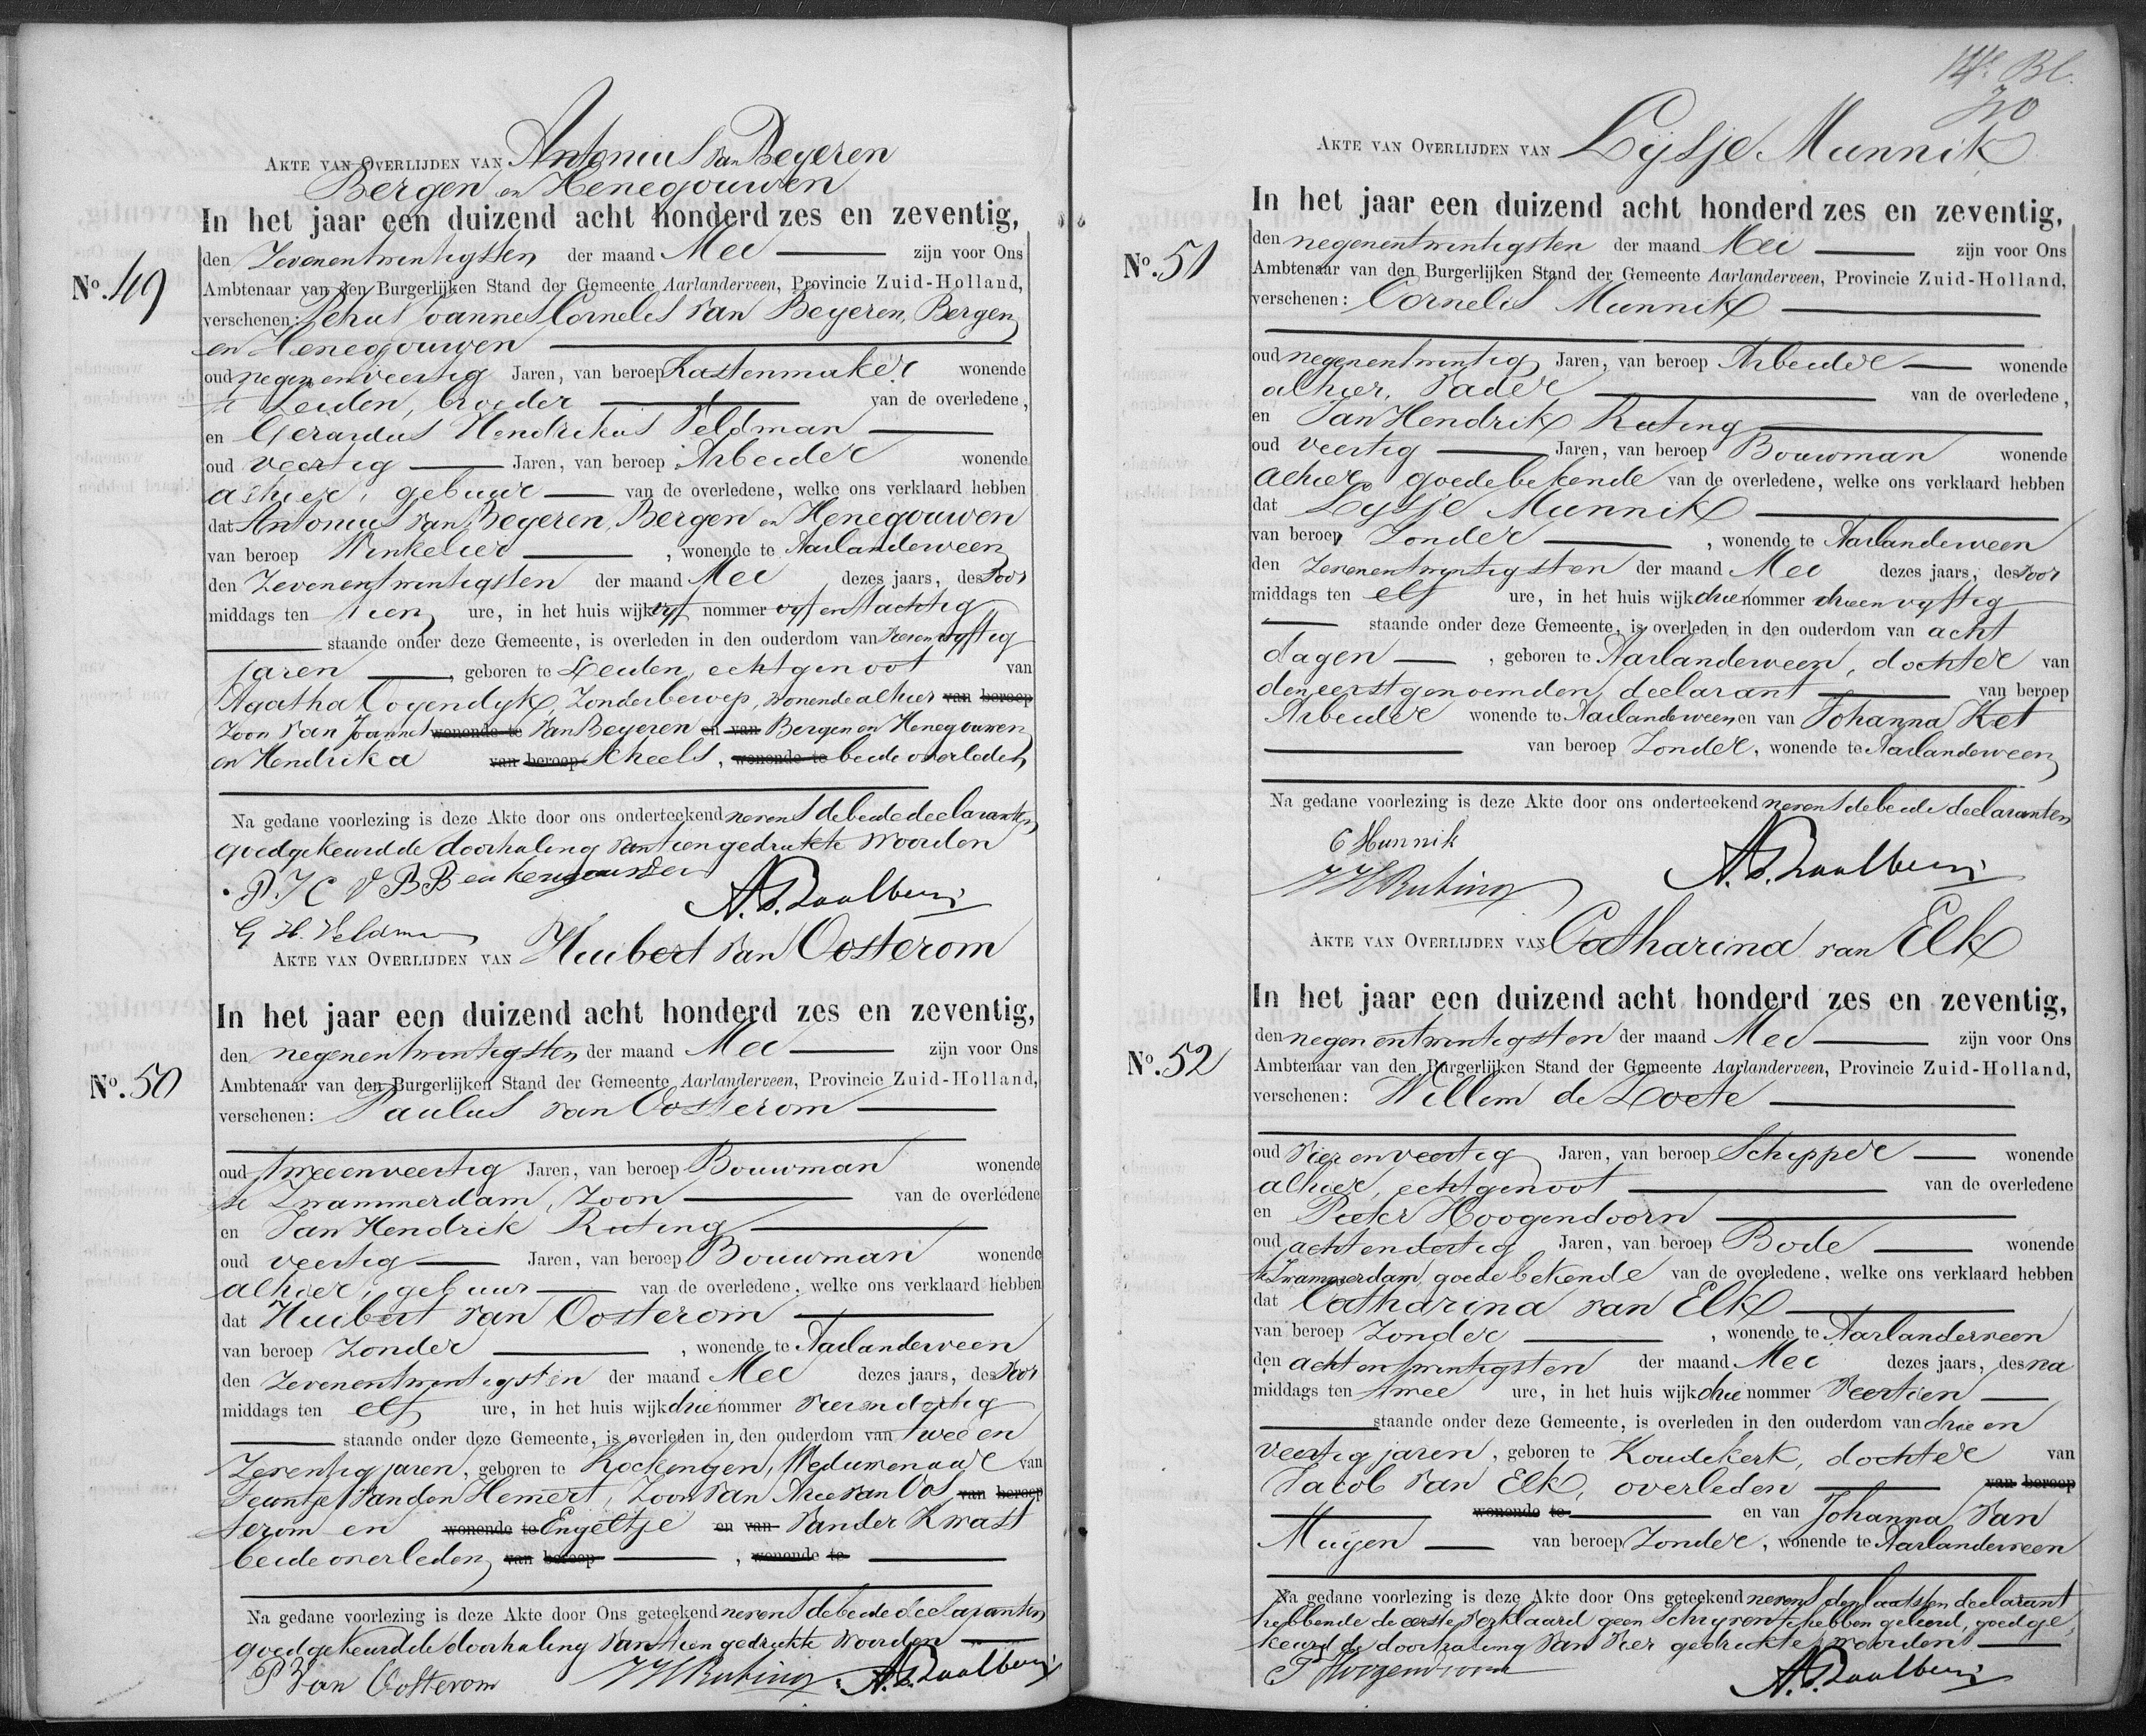 Akte van Overlijden van Antonius van Beyeren
Bergen en Henegouwen
In het jaar een duizend acht honderd zes en zeventig,
No. 49
den zevenentwintigsten der maand Mei zijn voor Ons
Ambtenaar van den Burgerlijken Stand der Gemeente Aarlanderveen, Provincie Zuid-Holland,
verschenen: Petrus Joannes Cornelis van Beyeren, Bergen
en Henegouwen
oud negenenveertig Jaren, van beroep Kastenmaker wonende
te Leiden, broeder van de overledene,
en Gerardus Hendrikus Veldman
oud veertig Jaren, van beroep Arbeider wonende
alhier, gebuur van de overledene, welke ons verklaard hebben
dat Antonius van Beyeren, Bergen en Henegouwen
van beroep Winkelier, wonende te Aarlanderveen
den zevenentwintigsten der maand Mei dezes jaars, des voor
middags ten tien ure, in het huis wijk vyf nommer vyf en tachtig
staande onder deze Gemeente, is overleden in den ouderdom van vierenvyftig
jaren, geboren te Leiden, echtgenoot van
Agatha Cogendyk, zonder beroep, wonende alhier van beroep
zoon van Joannes wonende te van Beyeren en van Bergen en Henegouwen
en Hendrika van beroep Scheels, wonende te beide overleden
Na gedane voorlezing is deze Akte door ons onderteekend nevens de beide declaranten
goedgekeurd de doorhaling van tien gedrukte woorden
P. J C V B B en Henegouwen
A. D. Zaalberg
G H. Veldman
Akte van Overlijden van Huibert van Oosterom
In het jaar een duizend acht honderd zes en zeventig,
No. 50
den negenentwintigsten der maand Mei zijn voor Ons
Ambtenaar van den Burgerlijken Stand der Gemeente Aarlanderveen, Provincie Zuid-Holland,
verschenen: Paulus van Oosterom
oud tweeenveertig Jaren, van beroep Bouwman wonende
te Zwammerdam, zoon van de overledene
en Jan Hendrik Ruting
oud veertig Jaren, van beroep Bouwman wonende
alhier, gebuur van de overledene, welke ons verklaard hebben
dat Huibert van Oosterom
van beroep Zonder, wonende te Aarlanderveen
den zevenentwintigsten der maand Mei dezes jaars, des voor
middags ten elf ure, in het huis wijk drie nommer vierendertig
staande onder deze Gemeente, is overleden in den ouderdom van twee en
zeventig jaren, geboren te Kockengen, Weduwenaar van
Teuntje van den Hemert, zoon van Arie van Oos van beroep
terom en wonende te Engeltje en van van der Kwast
beide overleden van beroep, wonende te
Na gedane voorlezing is deze Akte door Ons geteekend nevens de beide declaranten
goedgekeurd de doorhaling van tien gedrukte woorden
P Van Oosterom JH Ruting A. D. Zaalberg
14e Bl.
70
Akte van Overlijden van Lijsje Munnik
In het jaar een duizend acht honderd zes en zeventig,
No. 51
den negenentwintigsten der maand Mei zijn voor Ons
Ambtenaar van den Burgerlijken Stand der Gemeente Aarlanderveen, Provincie Zuid-Holland,
verschenen: Cornelis Munnik
oud negenentwintig Jaren, van beroep Arbeider wonende
alhier, vader van de overledene,
en Jan Hendrik Ruting
oud veertig Jaren, van beroep Bouwman wonende
alhier goede bekende van de overledene, welke ons verklaard hebben
dat Lysje Munnik
van beroep Zonder, wonende te Aarlanderveen
den zevenentwintigsten der maand Mei dezes jaars, des voor
middags ten elf ure, in het huis wijk drie nommer drieenvyftig
staande onder deze Gemeente, is overleden in den ouderdom van acht
dagen, geboren te Aarlanderveen, dochter van
den eerstgenoemden declarant van beroep
Arbeider wonende te Aarlanderveen en van Johanna Ket
van beroep Zonder, wonende te Aarlanderveen
Na gedane voorlezing is deze Akte door ons onderteekend nevens de beide declaranten
C Munnik
A. D. Zaalberg
JH Ruting
Akte van Overlijden van Catharina van Elk
In het jaar een duizend acht honderd zes en zeventig,
No. 52
den negenentwintigsten der maand Mei zijn voor Ons
Ambtenaar van den Burgerlijken Stand der Gemeente Aarlanderveen, Provincie Zuid-Holland,
verschenen: Willem de Zoete
oud vierenveertig Jaren, van beroep Schipper wonende
alhier, echtgenoot van de overledene
en Pieter Hoogendoorn
oud achtendertig Jaren, van beroep Bode wonende
te Zwammerdam, goede bekende van de overledene, welke ons verklaard hebben
dat Catharina van Elk
van beroep Zonder, wonende te Aarlanderveen
den achtentwintigsten der maand Mei dezes jaars, des na
middags ten twee ure, in het huis wijk drie nommer veertien
staande onder deze Gemeente, is overleden in den ouderdom van drie en
veertig jaren, geboren te Koudekerk, dochter van
Jacob van Elk, overleden van beroep
wonende te en van Johanna van
Muyen van beroep Zonder, wonende te Aarlanderveen
Na gedane voorlezing is deze Akte door Ons geteekend nevens den laatsten declarant
hebbende de eerste verklaard geen schryven te hebben geleerd, goedge
keurd de doorhaling van vier gedrukte woorden
P Hoogendoorn
A. D. Zaalberg